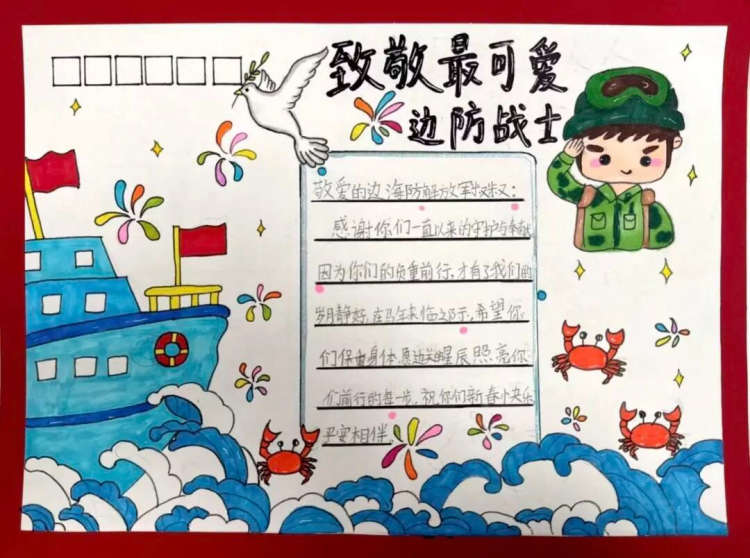 致敬最可爱
边防战士
敬爱的边海防解放军叔叔：
感谢你们一直以来的守护与奉献
因为你们的负重前行，才有了我们的
岁月静好，在马年来临之际，希望你
们保重身体，愿边关的星辰照亮你
们前行的每一步，祝你们新春快乐
平安相伴